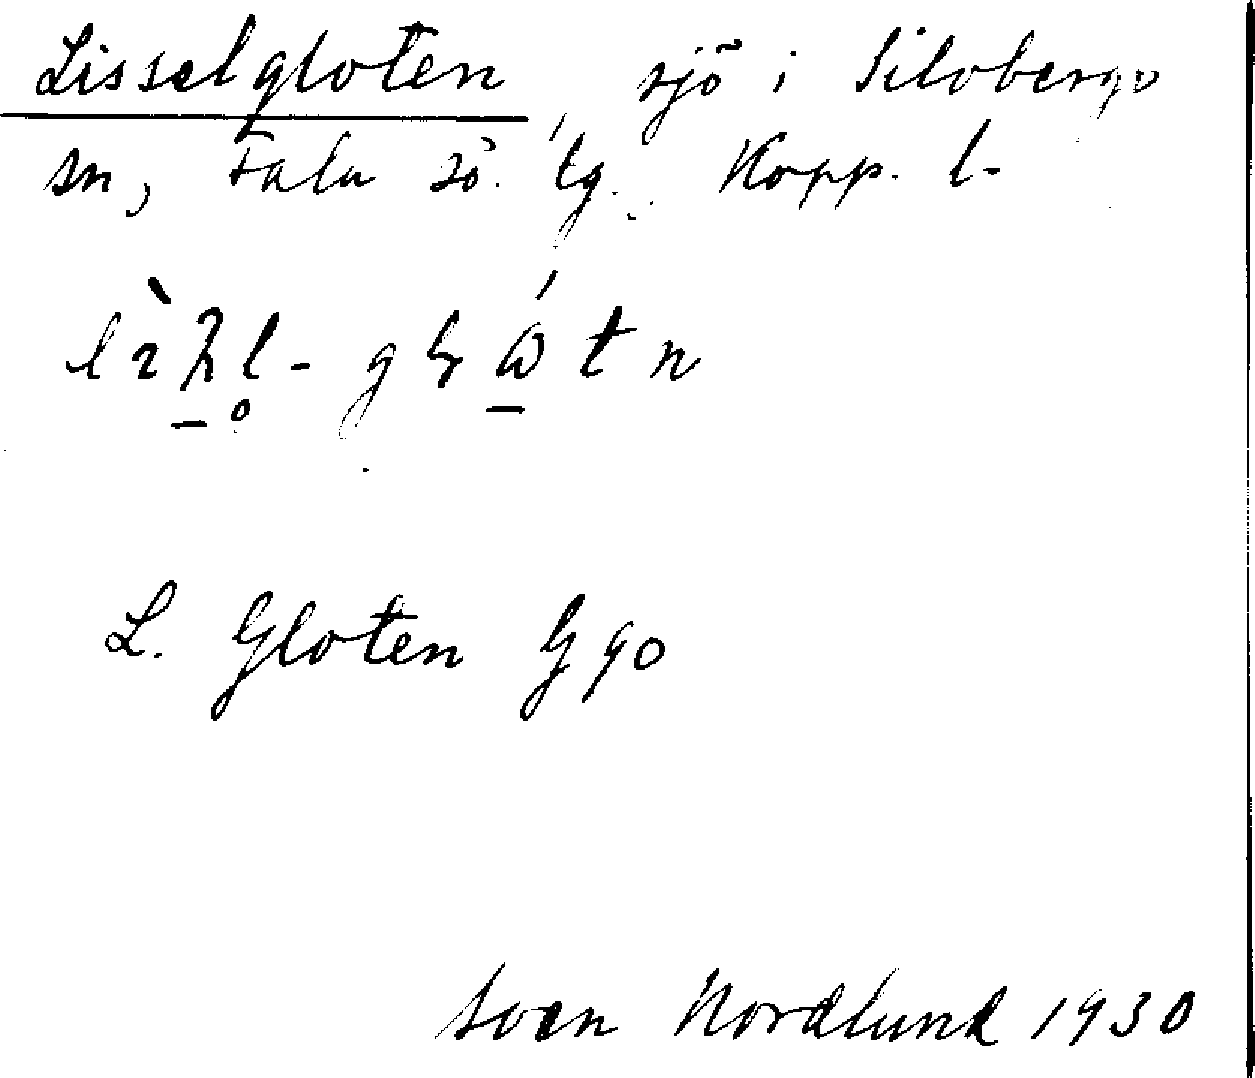 Lisselgloten, sjö i Silvbergs
sn, Falu sö. tg. Kopp. l.
L. Gloten G 90
Sven Nordlund 1930